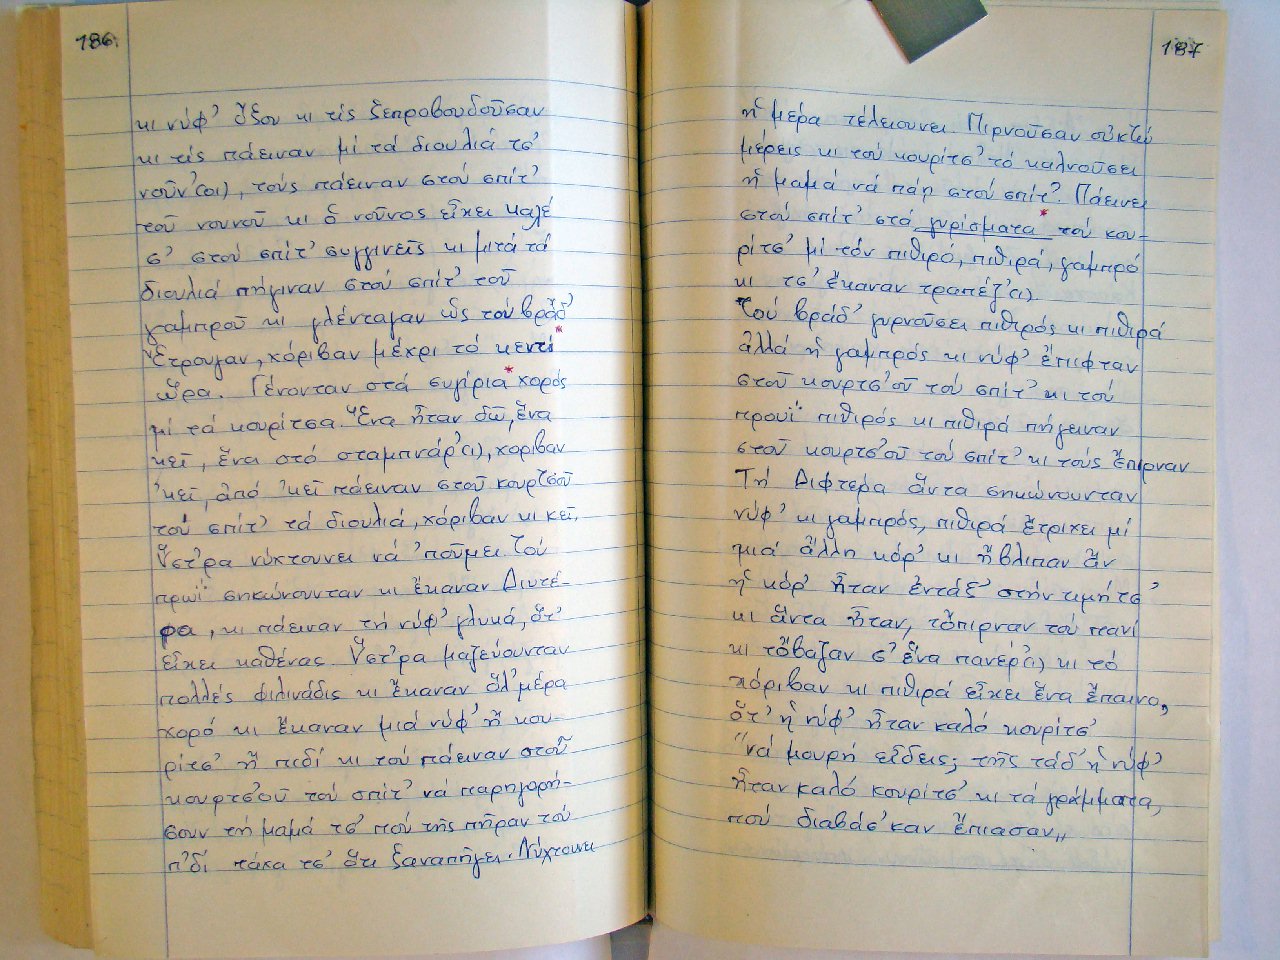 186.
κι νύφ' ὄξου κι τίς ξεπροβουδοῦσαν
κι τίς πάειναν μί τά διουλιά τσ'
νοῦν'ζοι), τούς πάειναν στού σπίτ'
τοῦ νουνοῦ κι ὁ νοῦνος εἶχει καλέ
σ' στού σπίτ' συγγινεῖς κι μιτά τά
διουλιά πήγιναν στού σπίτ' τοῦ
γαμπροῦ κι γλένταγαν ὥς τού βράδ'
Ἔτρουγαν, χόριβαν μέχρι τό κεντί*
ὥρα. Γένονταν στά συγίρια* χορός
μί τά κουρίτσα. Ἕνα ἦταν δῶ, ἕνα
κεῖ, ἕνα στό σταμπνάρ'ι), χοριβαν
'κεῖ, ἀπό 'κεῖ πάειναν στοῦ κουρτσ'οῦ
τού σπίτ' τά διουλιά, χόριβαν κι κεῖ.
Ὕστ'ρα νύκτουνει νά 'ποῦμει. Τού
πρωΐ σηκώνουνταν κι ἔκαναν Διυτέ-
ρα, κι πάειναν τή νύφ' γλυκά, ὅτ'
εἶχει καθένας. Ὕστ'ρα μαζεύουνταν
πολλές φιλινάδις κι ἔκαναν ὅλ' μέρα
χορό κι ἔκαναν μιά νύφ' ἤ κου-
ρίτσ' ἤ πιδί κι τού πάειναν στοῦ
κουρτσ'οῦ τού σπίτ' νά παρηγορή-
σουν τή μαμά τσ' πού τῆς πῆραν τού
π'δί τάκα τσ' ὅτι ξαναπῆγει. Νύχτουνι
187
ἡ μέρα τέλειουνει. Πιρνοῦσαν οὐκτώ
μέρεις κι τού κουρίτσ' τό καλνοῦσει
ἡ μαμά νά πάη στού σπίτ'. Πάεινει
στού σπίτ' στά γυρίσματα* τού κου-
ρίτσ' μί τόν πιθιρό, πιθιρά, γαμπρό
κι τσ' ἔκαναν τραπέζ'ι).
Τού βράδ' γυρνοῦσει πιθιρός κι πιθιρά
ἀλλά ἡ γαμπρός κι νύφ' ἔπιφταν
στοῦ κουρτσ'οῦ τού σπίτ' κι τού
πρωΐ πιθιρός κι πιθιρά πήγειναν
στοῦ κουρτσ'οῦ τού σπίτ' κι τούς ἔπιρναν
Τή Διφτέρα ἄντα σηκώνουνταν
νύφ' κι γαμπρός, πιθιρά ἔτριχει μί
μιά ἄλλη κόρ' κι ἤβλιπαν ἄν
ἡ κόρ' ἦταν ἐντάξ' στήν τιμήτσ'
κι ἄντα ἦταν, τὄπιρναν τού πανί
κι τὄβαζαν σ' ἕνα πανέρ'ι) κι τό
χόριβαν κι πιθιρά εἶχει ἕνα ἔπαινο,
ὅτ' ἡ νύφ' ἦταν καλό κουρίτσ'
"νά μουρή εἶδεις; τῆς τάδ' ἡ νύφ'
ἦταν καλό κουρίτσ' κι τά γράμματα,
πού διαβάσ'καν ἔπιασαν"